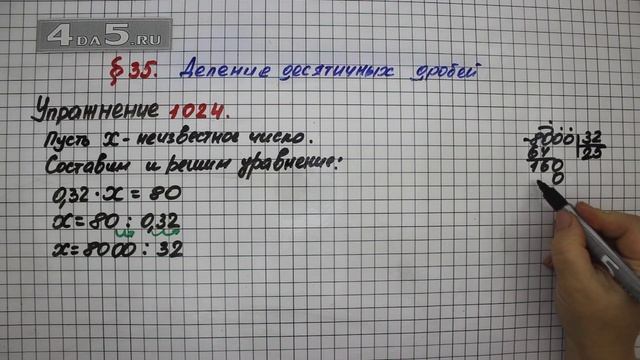 4DA5.RU
§ 35. Деление десятичных дробей
Упражнение 1024.
Пусть x - неизвестное число.
Составим и решим уравнение:
0,32 · x = 80
x = 80 : 0,32
x = 8000 : 32
-8000 | 32
64 | 25
160
0